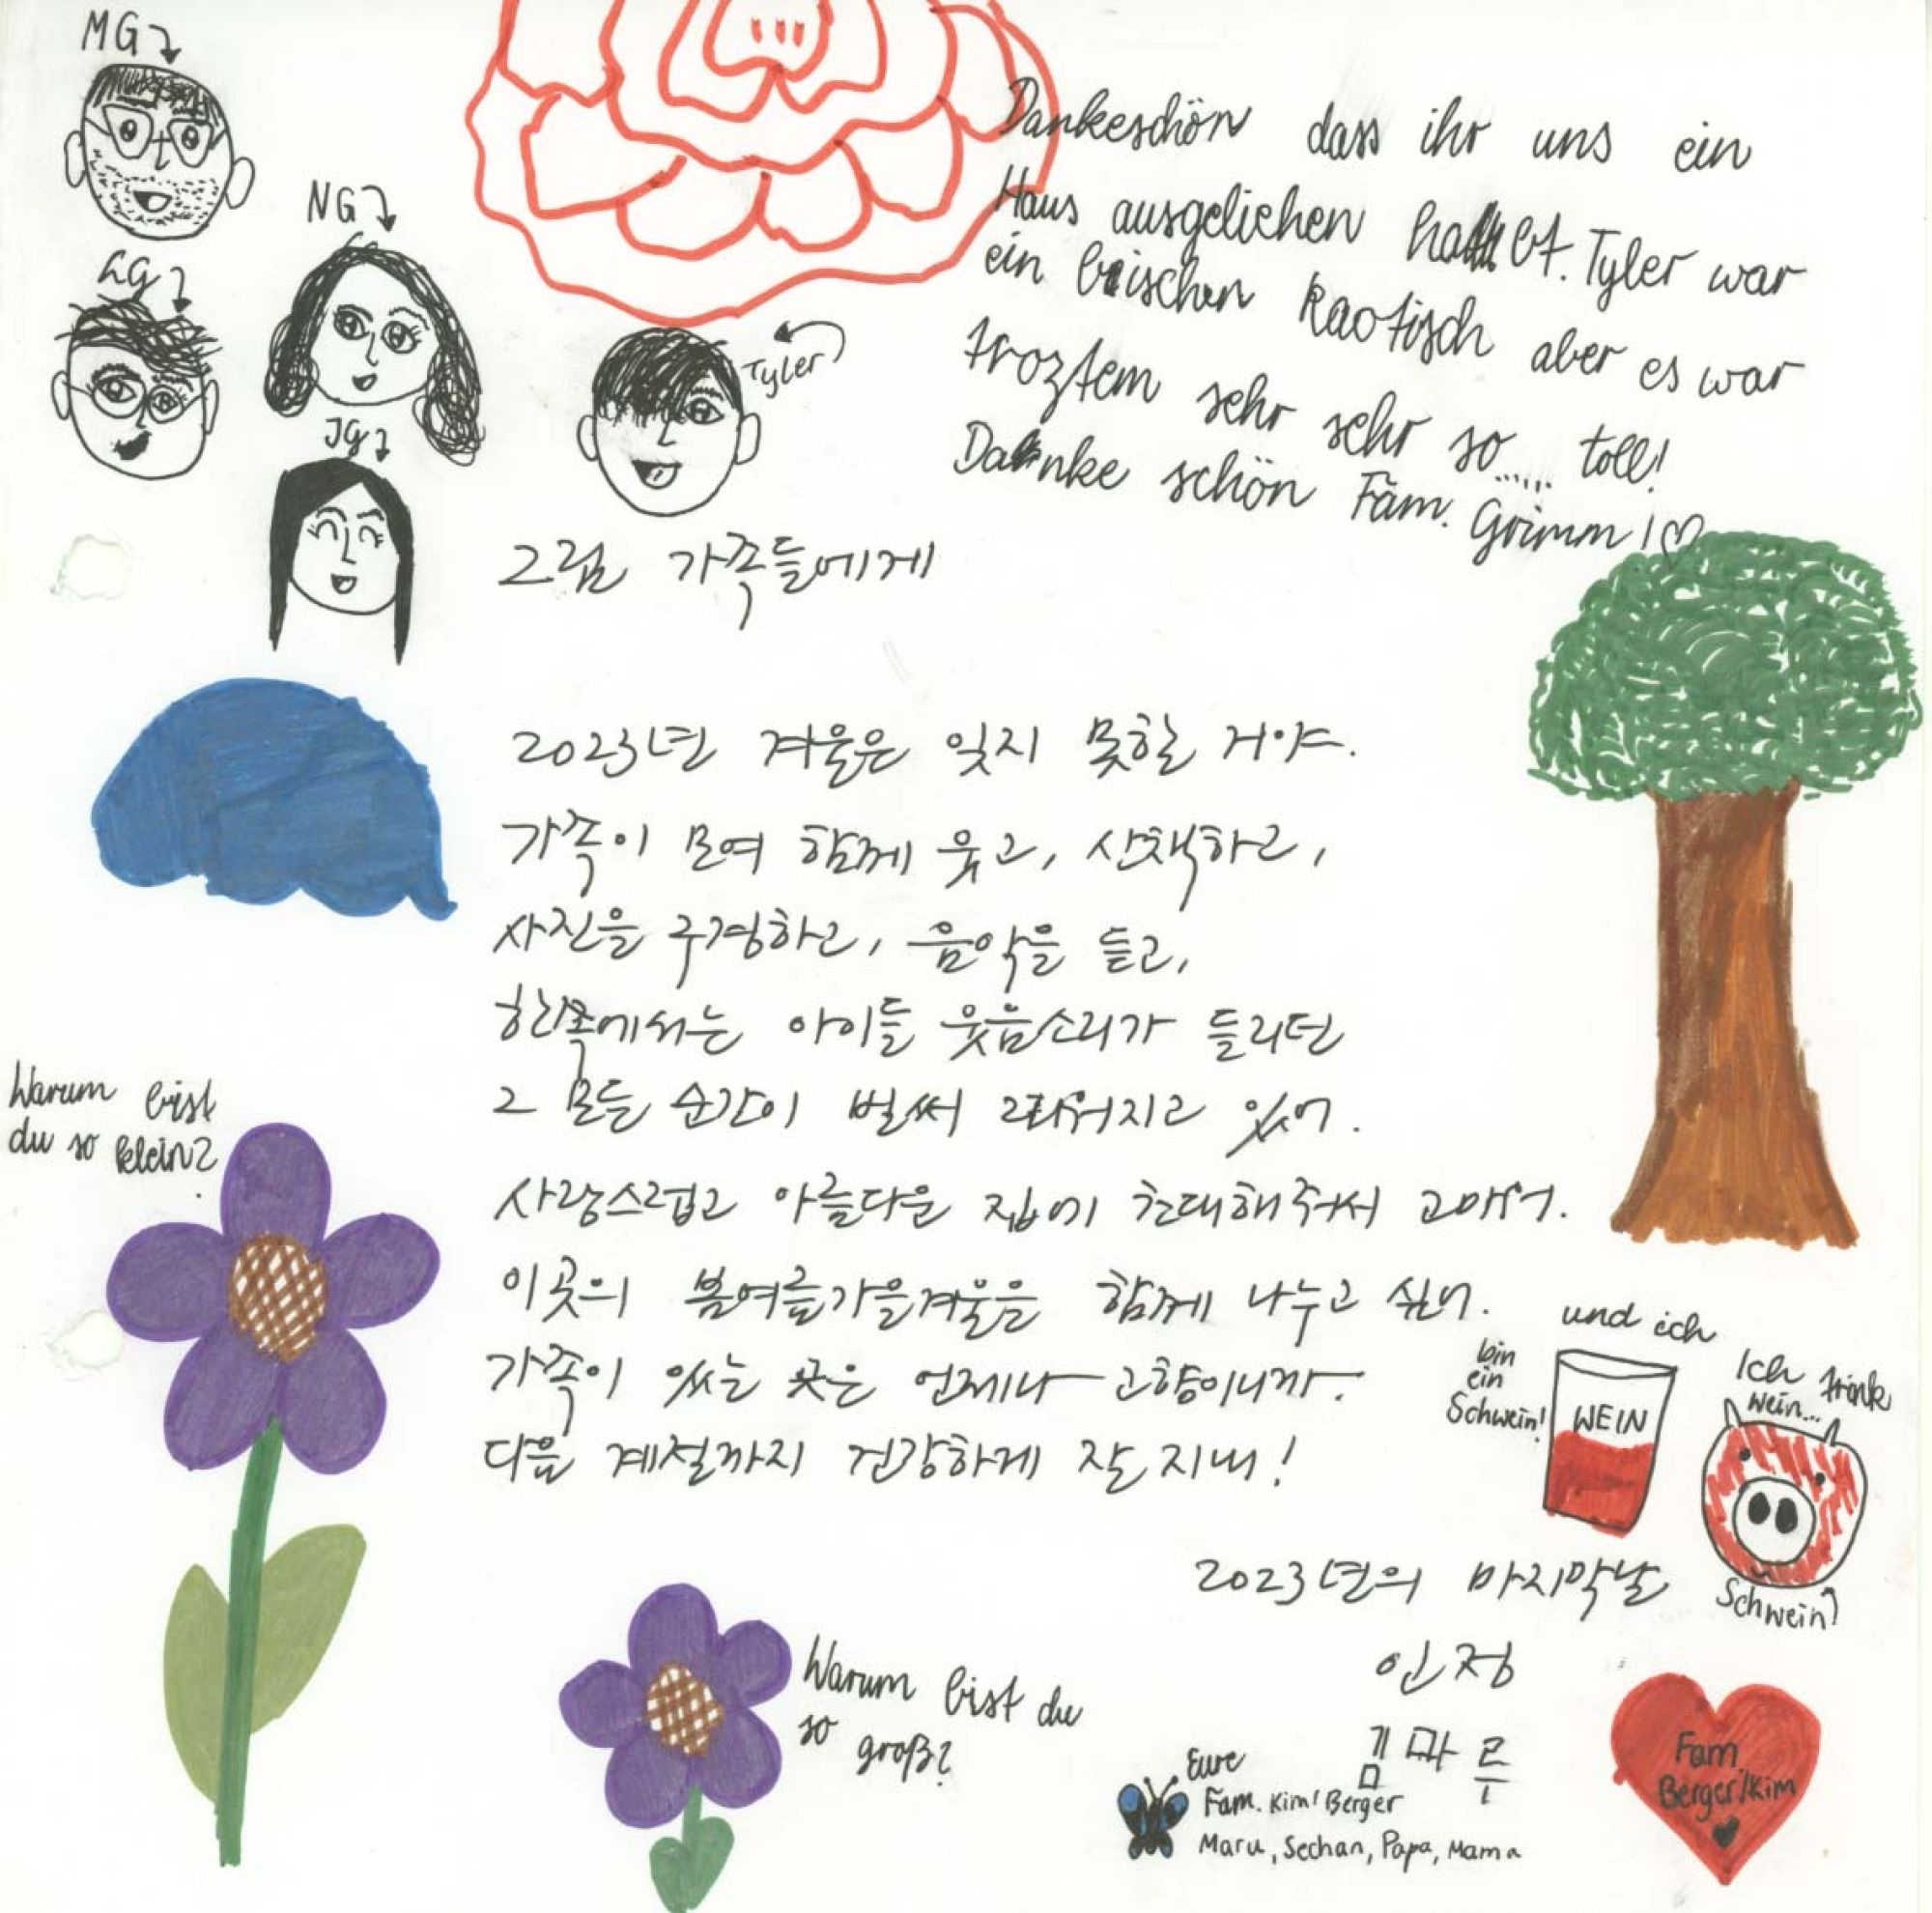 MG
NG
LG
JG
Tyler
Dankeschön dass ihr uns ein
Haus ausgeliehen habt. Tyler war
ein bischen kaotisch aber es war
troztem sehr sehr so..... toll!
Danke schön Fam. Grimm!♡
그림 가족들에게
2023년 겨울은 잊지 못할 거야.
가족이 모여 함께 웃고, 산책하고,
사진을 구경하고, 음악을 듣고,
한쪽에서는 아이들 웃음소리가 들리던
그 모든 순간이 벌써 그리워지고 있어.
사랑스럽고 아름다운 집에 초대해주어서 고마워.
이곳의 봄여름가을겨울을 함께 나누고 싶어.
가족이 있는 곳은 언제나 고향이니까.
다음 계절까지 건강하게 잘 지내!
2023년의 마지막날
인정
김마루
Warum bist
du so klein?
Warum bist du
so groß?
Ich trink
Wein...
und ich
bin
ein
Schwein!
WEIN
Schwein
Eure
Fam. Kim/Berger
Maru, Sechan, Papa, Mama
Fam.
Berger/Kim